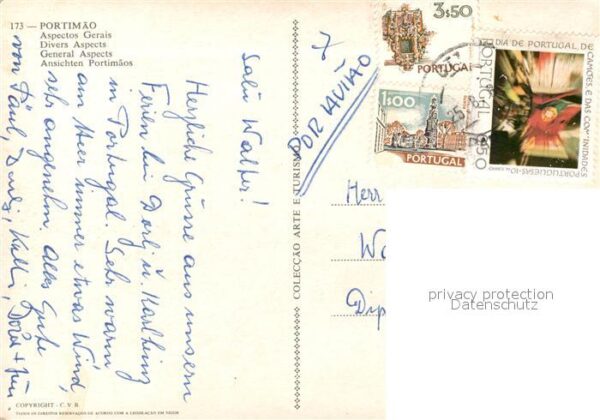 173 — PORTIMÃO
Aspectos Gerais
Divers Aspects
General Aspects
Ansichten Portimãos
Salü Walter!
Herzliche Grüsse aus unsern
Ferien bei Dorly u. Karlheinz
in Portugal. Sehr warm
am Meer immer etwas Wind,
sehr angenehm. Alles Gute
von Paul,
COPYRIGHT - C.V.B
TODOS OS DIREITOS RESERVADOS DE ACORDO COM A LEGISLAÇÃO EM VIGOR
COLECÇÃO ARTE E TURISMO
POR AVIÃO
3$50
PORTUGAL
1$00
PORTUGAL
DIA DE PORTUGAL, DE
CAMÕES E DAS COMUNIDADES
PORTUGUESAS-10
PORTUGAL
Herr
Wa
Dip
privacy protection
Datenschutz